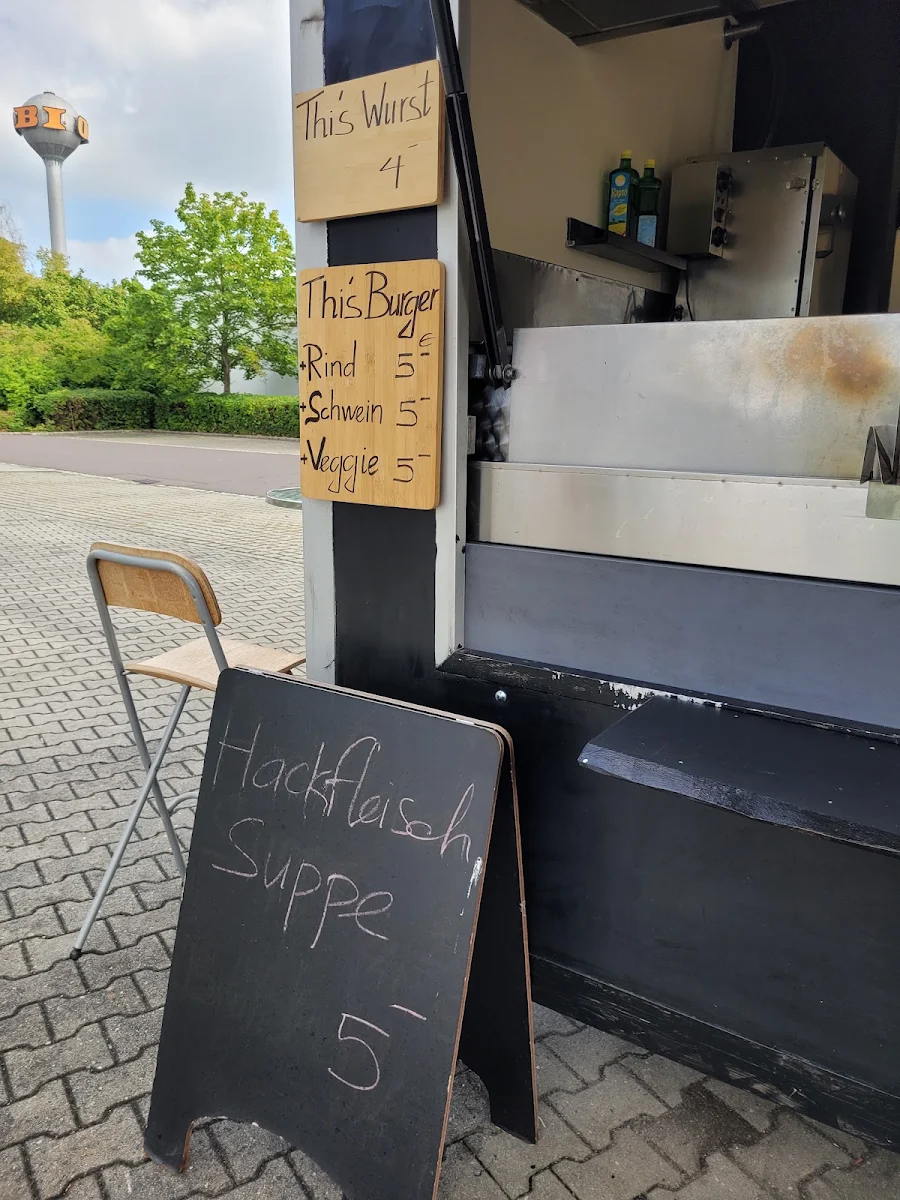 BIO
This Wurst
4-
This Burger
€
+Rind 5-
+Schwein 5-
+Veggie 5-
Hackfleisch
Suppe
5-